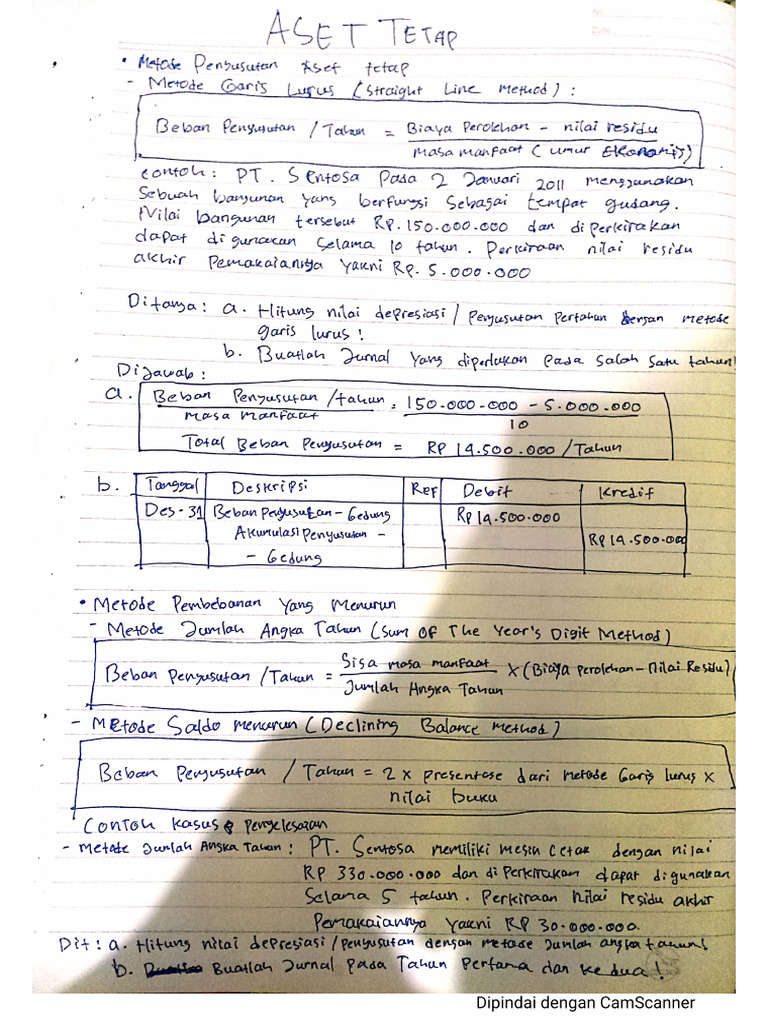 ASET TETAP
• Metode Penyusutan Aset tetap
- Metode Garis Lurus (Straight Line Method) :
Beban Penyusutan / Tahun = Biaya Perolehan - nilai residu
masa manfaat ( umur Ekonomis)
contoh : PT. Sentosa Pada 2 Januari 2011 menggunakan
Sebuah bangunan yang berfungsi Sebagai tempat gudang.
Nilai bangunan tersebut Rp. 150.000.000 dan diperkirakan
dapat digunakan Selama 10 tahun. Perkiraan nilai residu
akhir Pemakaiannya yakni Rp. 5.000.000
Ditanya : a. Hitung nilai depresiasi / Penyusutan Pertahun dengan metode
garis lurus !
b. Buatlah Jurnal yang diperlukan pada Salah Satu tahun!
Dijawab :
a. Beban Penyusutan /tahun = 150.000.000 - 5.000.000
masa manfaat 10
Total Beban Penyusutan = RP 14.500.000 / Tahun
b. Tanggal Deskripsi Ref Debit Kredit
Des - 31 Beban Penyusutan - Gedung Rp 14.500.000
Akumulasi Penyusutan - Rp 14.500.000
- Gedung
• Metode Pembebanan Yang Menurun
- Metode Jumlah Angka Tahun (Sum Of The Year's Digit Method)
Beban Penyusutan / Tahun = Sisa masa manfaat X (Biaya perolehan - Nilai Residu)
Jumlah Angka Tahun
- Metode Saldo menurun (Declining Balance Method)
Beban Penyusutan / Tahun = 2 x presentase dari metode Garis lurus x
nilai buku
Contoh kasus & Penyelesaian
- Metode Jumlah Angka Tahun : PT. Sentosa memiliki mesin cetak dengan nilai
RP 330.000.000 dan diperkirakan dapat digunakan
Selama 5 tahun. Perkiraan nilai residu akhir
Pemakaiannya Yakni RP 30.000.000.
Dit : a. Hitung nilai depresiasi / penyusutan dengan metode Jumlah angka tahun!
b. Buatlah Jurnal Pada Tahun Pertama dan kedua !
Dipindai dengan CamScanner